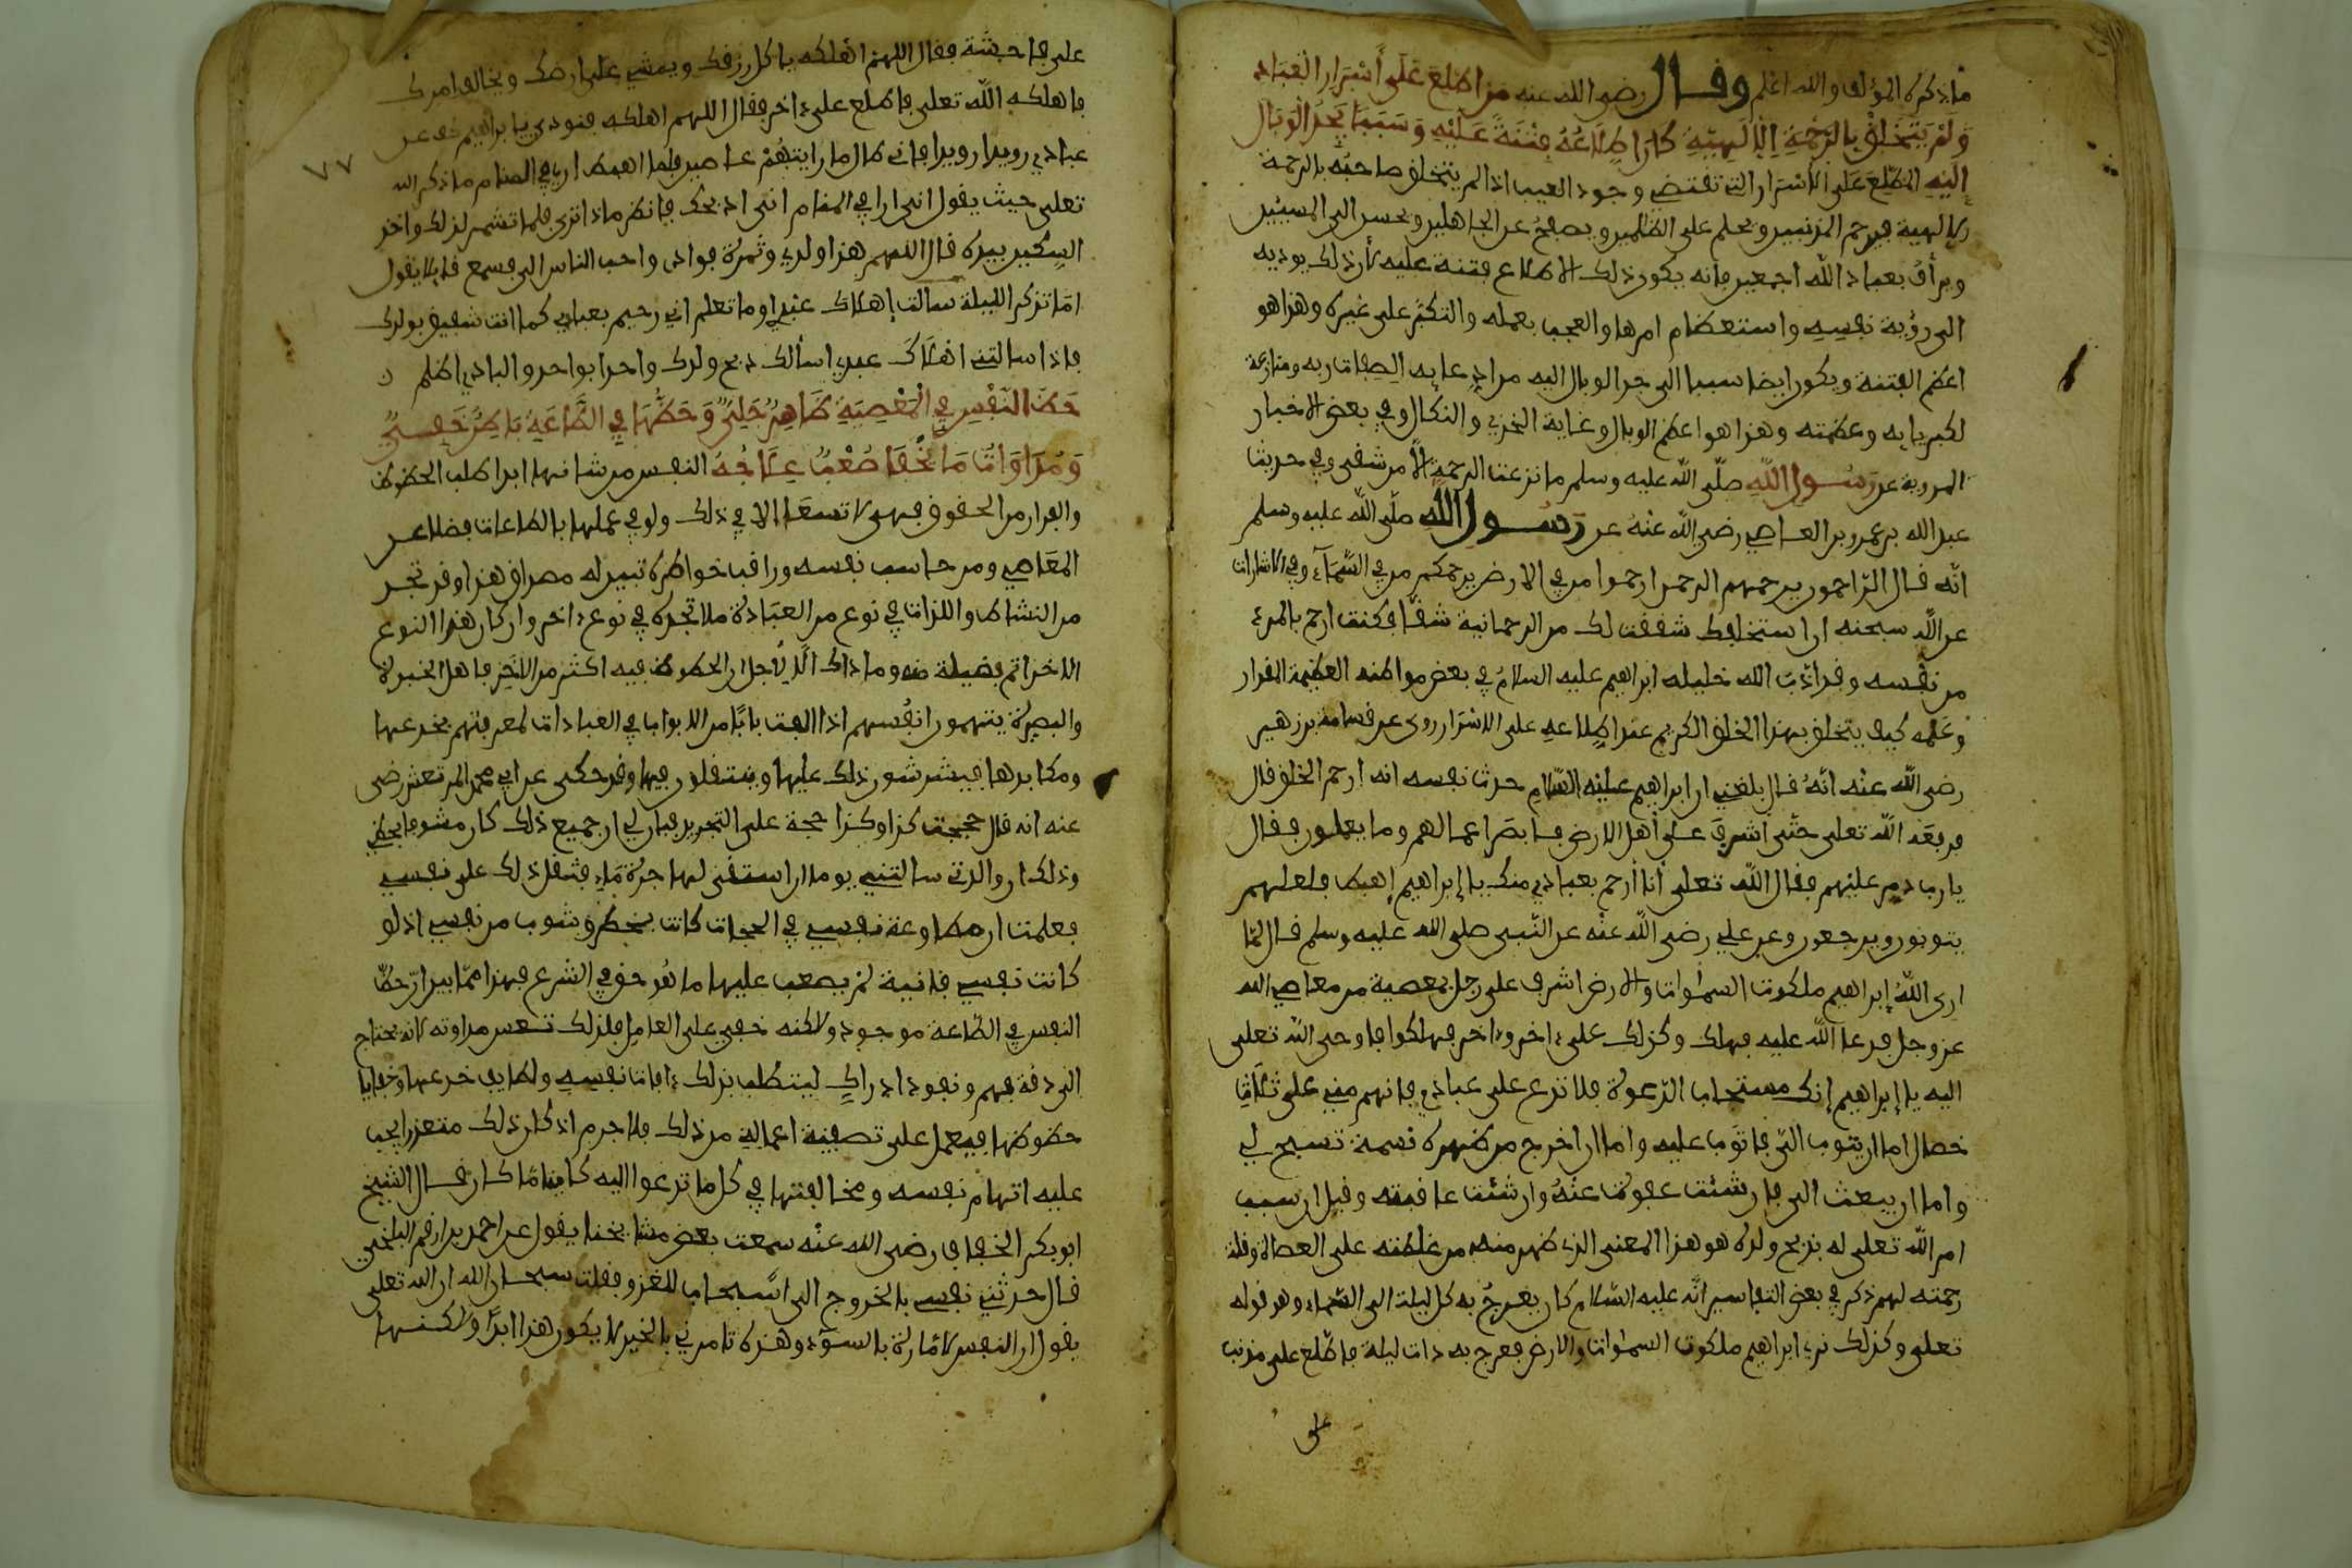 ما ذكره المؤلف والله اعلم وقال رضي الله عنه من اطلع على أسرار العباد
ولم يتخلق بالرحمة الالهية كان اطلاعه فتنة عليه وسببا يجر الوبال
إليه المطلع على الاسرار التي تقتضي وجود العيب اذا لم يتخلق صاحبه بالرحمة
الالهية فيرحم المذنبين ويحلم على الظلمين ويصفح عن الجاهلين ويحسن الى المسيئين
ويرأف بعباد الله اجمعين فانه يكون ذلك الاطلاع فتنة عليه لأن ذلك يوديه
الى رؤية نفسه واستعظام امرها والعجب بعمله والتكبر على غيره وهذا هو
اعظم الفتنة ويكون ايضا سببا الى جر الوبال اليه من ادعايه لصفات ربه ومنازعة
لكبريايه وعظمته وهذا هو اعظم الوبال وغاية الخزي والنكال وفي بعض الاخبار
المروية عن رسول الله صلى الله عليه وسلم ما نزعت الرحمة الا من شقي وفي حديث
عبد الله بن عمرو بن العاصي رضي الله عنه عن رسول الله صلى الله عليه وسلم
انه قال الراحمون يرحمهم الرحمن ارحموا من في الارض يرحمكم من في السماء وفي الاشارات
عن الله سبحنه ان استخلفك شققت لك من الرحمانية شقا فكنت ارحم بالمرء
من نفسه وقد ادب الله خليله ابراهيم عليه السلام في بعض مواطنه العظيمة المقدار
وعلمه كيف يتخلق بهذا الخلق الكريم عند اطلاعه على الاسرار روى عن قسامة بن زهير
رضي الله عنه انه قال بلغني ان ابراهيم عليه السلام حدث نفسه انه ارحم الخلق قال
فرفعه الله تعلى حتى اشرف على أهل الارض فابصر اعمالهم وما يعملون فقال
يا رب دمر عليهم فقال الله تعلى أنا أرحم بعبادي منك يا إبراهيم إهبط فلعلهم
يتوبون ويرجعون وعن علي رضي الله عنه عن النبي صلى الله عليه وسلم قال لما
ارى الله إبراهيم ملكوت السموات والارض اشرف على رجل بمعصية من معاصي الله
عز وجل فدعا الله عليه فهلك وكذلك على ءاخر وءاخر فهلكوا فاوحى الله تعلى
اليه يا إبراهيم إنك مستجاب الدعوة فلا تدع على عبادي فانهم مني على ثلاث
خصال اما ان يتوب التي فاتوب عليه واما ان اخرج من ظهره نسمة تسبح لي
واما ان يبعث الي فان شئت عفوت عنه وان شئت عاقبته وقيل ان سبب
امر الله تعلى له بذبح ولده هو هذا المعنى الذي ظهر منه من غلظته على العصاة وقلة
رحمته لهم ذكر في بعض التفاسير انه عليه السلام كان يعرج به كل ليلة الى السماء وهو قوله
تعلى وكذلك نرى ابراهيم ملكوت السموات والارض فعرج به ذات ليلة فاطلع على مذنب
على
٧٧
على فاحشة فقال اللهم اهلكه يا كل رزقك ويمشي على ارضك ويخالف امرك
فاهلكه الله تعلى فاطلع على ءاخر فقال اللهم اهلكه فنودي يا براهيم كف عن
عبادي رويدا رويدا فاني طال ما رايتهم عاصين فلما اهبط اري في المنام ما ذكر الله
تعلى حيث يقول اني ارا في المنام انى اذبحك فانظر ماذا ترى فلما تشمر لذلك واخذ
السكين بيده قال اللهم هذا ولدي وثمرة فوادى واحب الناس الي فسمع قايلا يقول
اما تذكر الليلة سالت إهلاك عبدي اوما تعلم اني رحيم بعبادي كما انت شفيق بولدك
فاذا سالتني اهلاك عبدي اسألك ذبح ولدك واحدا بواحد والبادي اظلم
حظ النفس في المعصية ظاهر جلي وحظها في الطاعة باطن خفي
ومداواة ما يخفا صعب علاجه النفس من شانها ابدا طلب الحظوظ
والفرار من الحقوق فهي لا تسعا الا في ذلك ولو في عملها بالطاعات فضلا عن
المعاصي ومن حاسب نفسه وراقب خواطره تبين له مصداق هذا وقد تجد
من النشاط واللذات في نوع من العبادة ما لا تجده في نوع ءاخر وان كان هذا النوع
الاخر اتم فضيلة منه وما ذاك الا لاجل ان الحظوظ فيه اكثر من الاخر فاهل الخبرة
والبصيرة يتهمون انفسهم اذا الفت بابا من الابواب في العبادات لمعرفتهم بخدعها
ومكايدها فيشوشون ذلك عليها وينتقلون فيها وقد حكى عن ابي محمد المرتعش رضي
عنه انه قال حججت كذا وكذا حجة على التجريد فبان لي ان جميع ذلك كان مشوبا بحظي
وذلك ان والدتي سالتني يوما ان استقي لها جرة ماء فثقل ذلك على نفسي
فعلمت ان مطاوعة نفسي في الحجات كانت بحظ وشوب من نفسي اذ لو
كانت نفسي فانية لم يصعب عليها ما هو حق في الشرع فهذا مما يبين ان حظ
النفس في الطاعة موجود ولاكنه خفي على العامل فلذلك تعسر مداوته لانه يحتاج
الى دقة فهم ونفوذ ادراك ليتطلب بذلك ءافات نفسه ولطايف خدعها وخفايا
حظوظها فيعمل على تصفية اعماله من ذلك فلا جرم اذ كان ذلك متعذرا يجب
عليه اتهام نفسه ومخالفتها في كل ما تدعوا اليه كاينا ما كان قال الشيخ
ابو بكر الخفاف رضي الله عنه سمعت بعض مشايخنا يقول عن احمد بن ارقم البلخي
قال حدثني نفسي بالخروج الى اسبجاب للغزو فقلت سبحان الله ان الله تعلى
يقول ان النفس لامارة بالسوء وهذه تامرني بالخير لا يكون هذا ابدا ولكنها